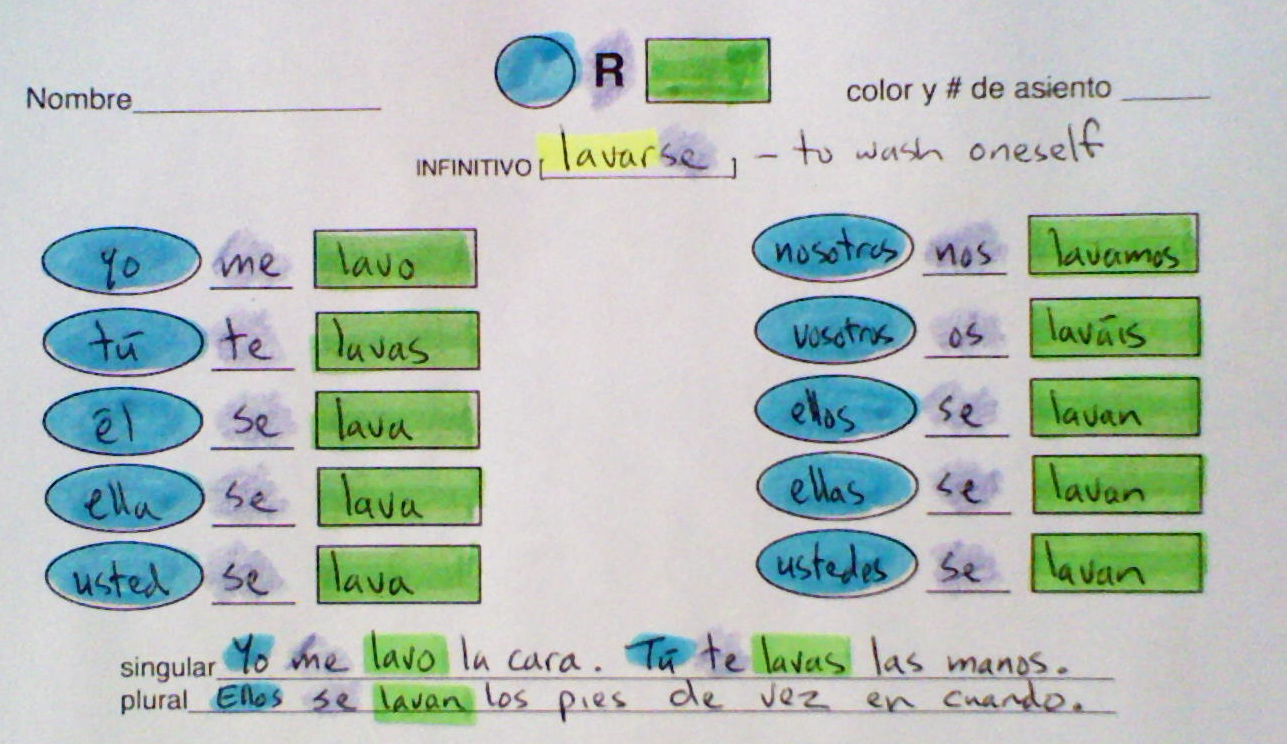 R
Nombre color y # de asiento
INFINITIVO lavarse - to wash oneself
yo me lavo nosotros nos lavamos
tú te lavas vosotros os laváis
él se lava ellos se lavan
ella se lava ellas se lavan
usted se lava ustedes se lavan
singular Yo me lavo la cara. Tú te lavas las manos.
plural Ellos se lavan los pies de vez en cuando.